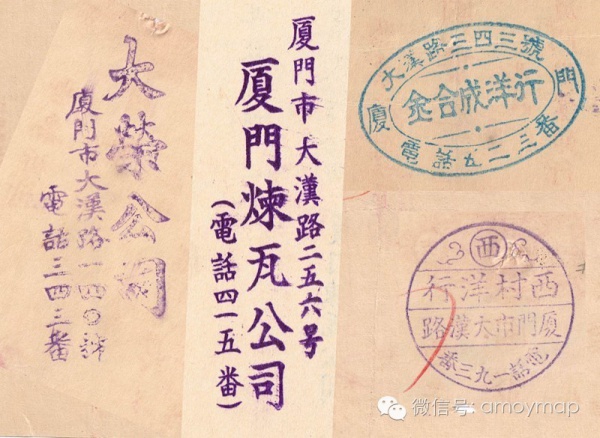 大榮公司
廈門市大漢路一四〇號
電話三四三番
厦門市大漢路二五六号
厦門煉瓦公司
(電話四一五番)
大漢路三四三號
廈門
金合成洋行
電話五二三番
西
西村洋行
厦門市大漢路
電話一九三番
微信号: amoymap